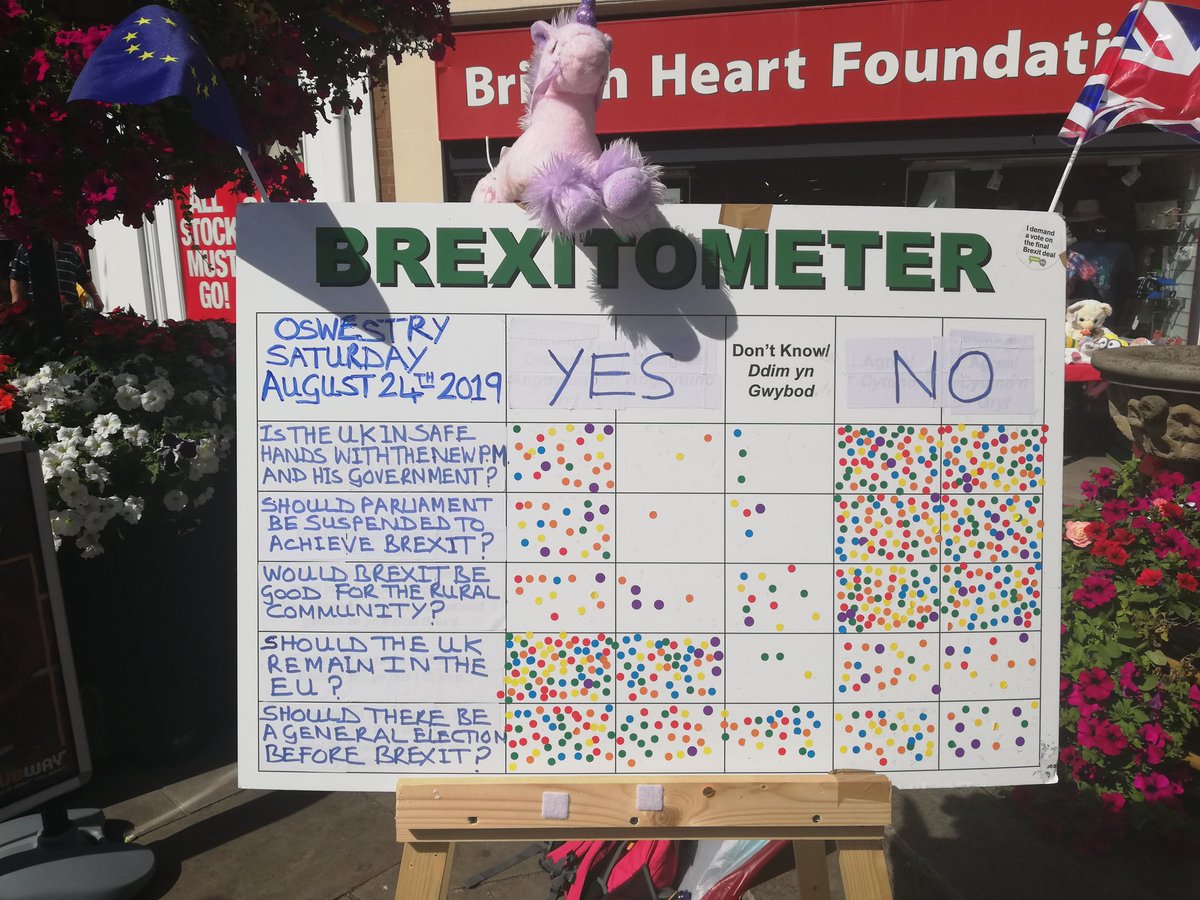 British Heart Foundati
ALL
STOCK
MUST
GO!
BREXITOMETER
I demand
a vote on
the final
Brexit deal
OSWESTRY
SATURDAY
AUGUST 24TH 2019
YES
Don't Know/
Ddim yn
Gwybod
NO
IS THE UK IN SAFE
HANDS WITH THE NEW PM
AND HIS GOVERNMENT?
SHOULD PARLIAMENT
BE SUSPENDED TO
ACHIEVE BREXIT?
WOULD BREXIT BE
GOOD FOR THE RURAL
COMMUNITY?
SHOULD THE UK
REMAIN IN THE
EU?
SHOULD THERE BE
A GENERAL ELECTION
BEFORE BREXIT?
UBWAY